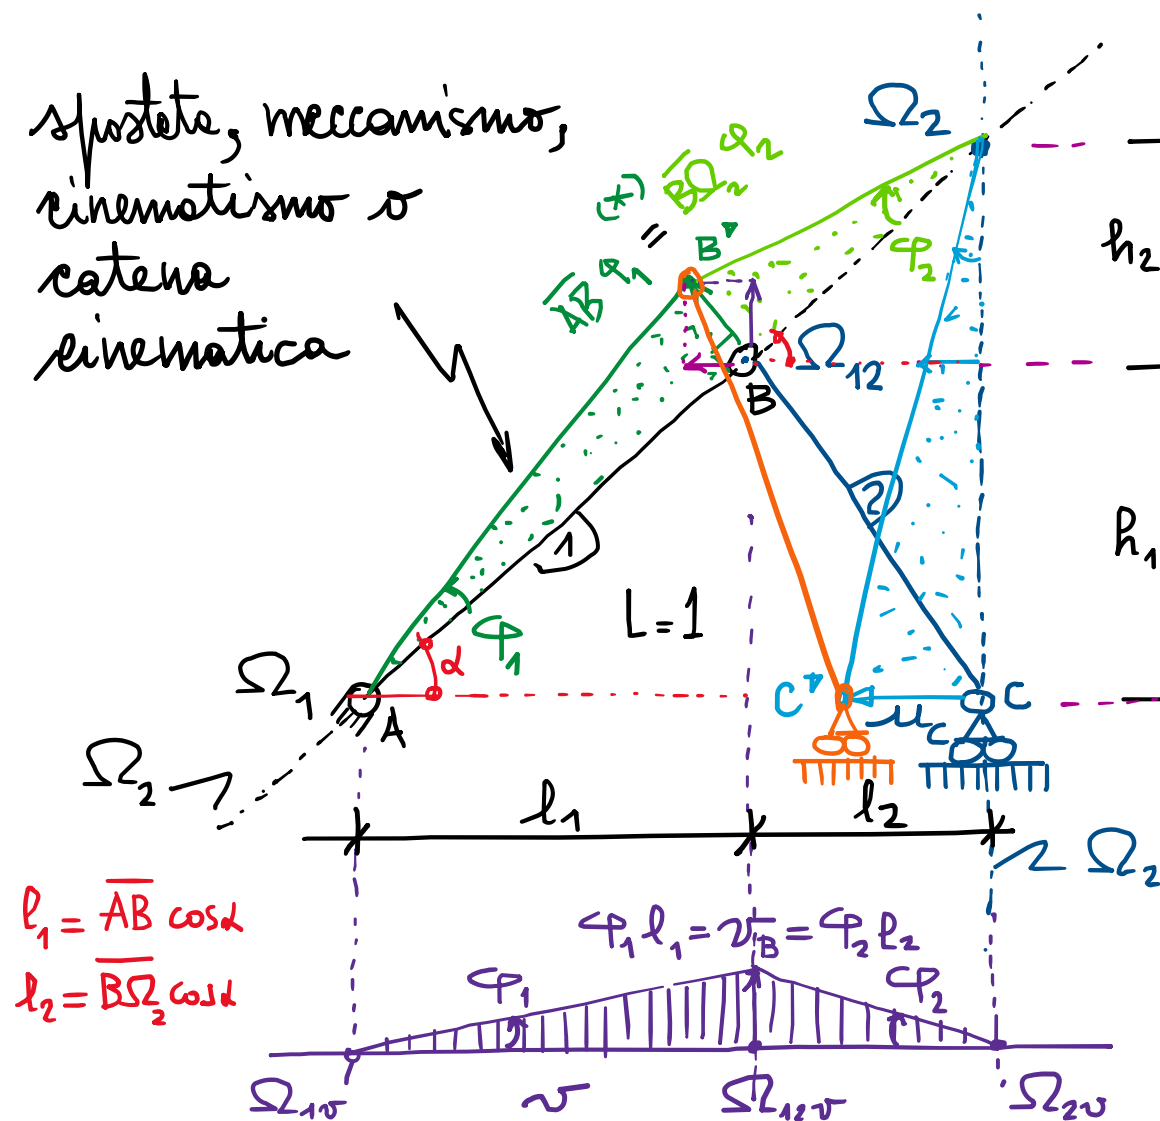 sposteta, meccanismo,
cinematismo o
catena
cinematica
Ω₂
(*)
AB φ₁ = BΩ₂ φ₂
B'
φ₂
h₂
Ω₁₂
B
2
1
h₁
L=1
φ₁
α
Ω₁
A
C'
u_C
C
Ω₂
l₁
l₂
Ω₂
l₁ = AB cosα
l₂ = BΩ₂ cosα
φ₁ l₁ = v_B = φ₂ l₂
φ₁
φ₂
Ω₁ᵥ
v
Ω₁₂ᵥ
Ω₂ᵥ